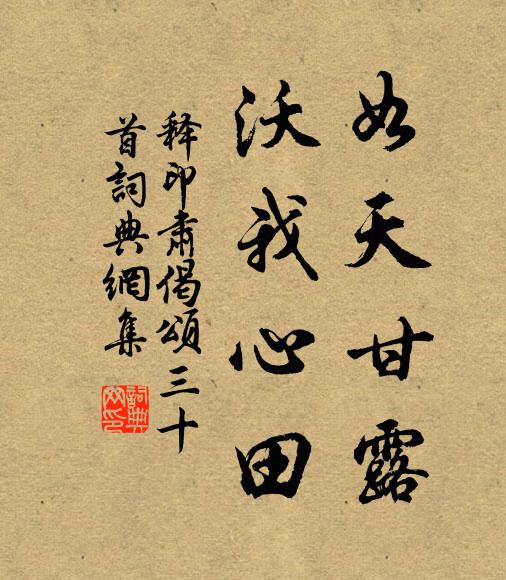 如天甘露
沃我心田
释印肃偈頌三十
首詞典網集
詞典
网印